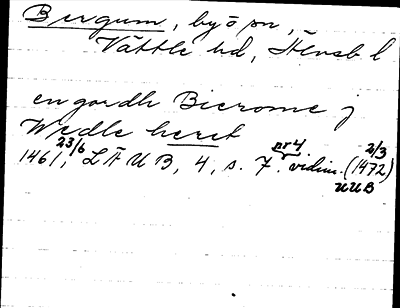 Bergum, by o sn,
Vättle hd, Älvsb l
en gordh Bierome j
Wedle heret
1461 23/6, LÄUB, 4, s. 7. nr 4. vidim. (1472) 2/3
UUB